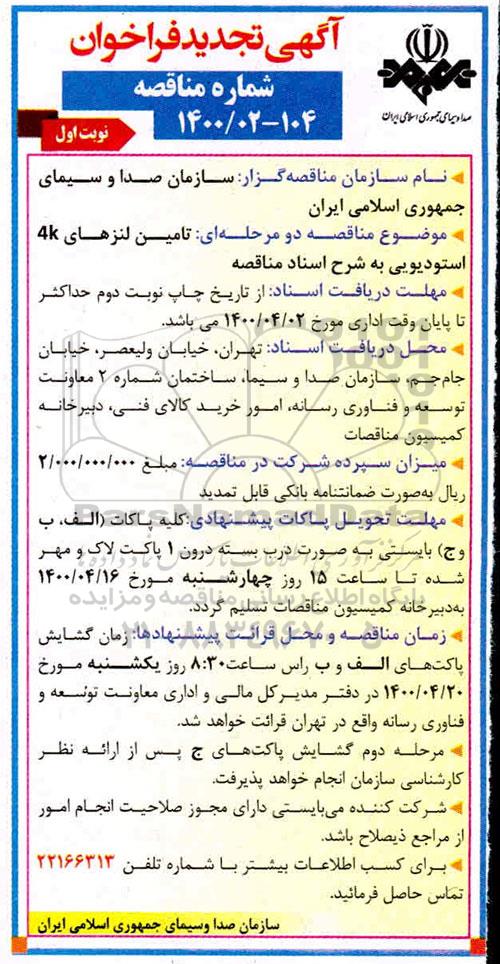 آگهی تجدید فراخوان
شماره مناقصه
۱۴۰۰/۰۲-۱۰۴
نوبت اول
صدا و سیمای جمهوری اسلامی ایران
نام سازمان مناقصه‌گزار: سازمان صدا و سیمای
جمهوری اسلامی ایران
موضوع مناقصه دو مرحله‌ای: تامین لنزهای 4k
استودیویی به شرح اسناد مناقصه
مهلت دریافت اسناد: از تاریخ چاپ نوبت دوم حداکثر
تا پایان وقت اداری مورخ ۱۴۰۰/۰۴/۰۲ می باشد.
محل دریافت اسناد: تهران، خیابان ولیعصر، خیابان
جام‌جم، سازمان صدا و سیما، ساختمان شماره ۲ معاونت
توسعه و فناوری رسانه، امور خرید کالای فنی، دبیرخانه
کمیسیون مناقصات
میزان سپرده شرکت در مناقصه: مبلغ ۲/۰۰۰/۰۰۰/۰۰۰
ریال به‌صورت ضمانتنامه بانکی قابل تمدید
مهلت تحویل پاکات پیشنهادی: کلیه پاکات (الف، ب
و ج) بایستی به صورت درب بسته درون ۱ پاکت لاک و مهر
شده تا ساعت ۱۵ روز چهارشنبه مورخ ۱۴۰۰/۰۴/۱۶
به‌دبیرخانه کمیسیون مناقصات تسلیم گردد.
زمان مناقصه و محل قرائت پیشنهادها: زمان گشایش
پاکت‌های الف و ب راس ساعت ۸:۳۰ روز یکشنبه مورخ
۱۴۰۰/۰۴/۲۰ در دفتر مدیرکل مالی و اداری معاونت توسعه و
فناوری رسانه واقع در تهران قرائت خواهد شد.
مرحله دوم گشایش پاکت‌های ج پس از ارائه نظر
کارشناسی سازمان انجام خواهد پذیرفت.
شرکت کننده می‌بایستی دارای مجوز صلاحیت انجام امور
از مراجع ذیصلاح باشد.
برای کسب اطلاعات بیشتر با شماره تلفن ۲۲۱۶۶۳۱۳
تماس حاصل فرمائید.
سازمان صدا وسیمای جمهوری اسلامی ایران
ParsNamadData
پایگاه اطلاع رسانی مناقصه و مزایده